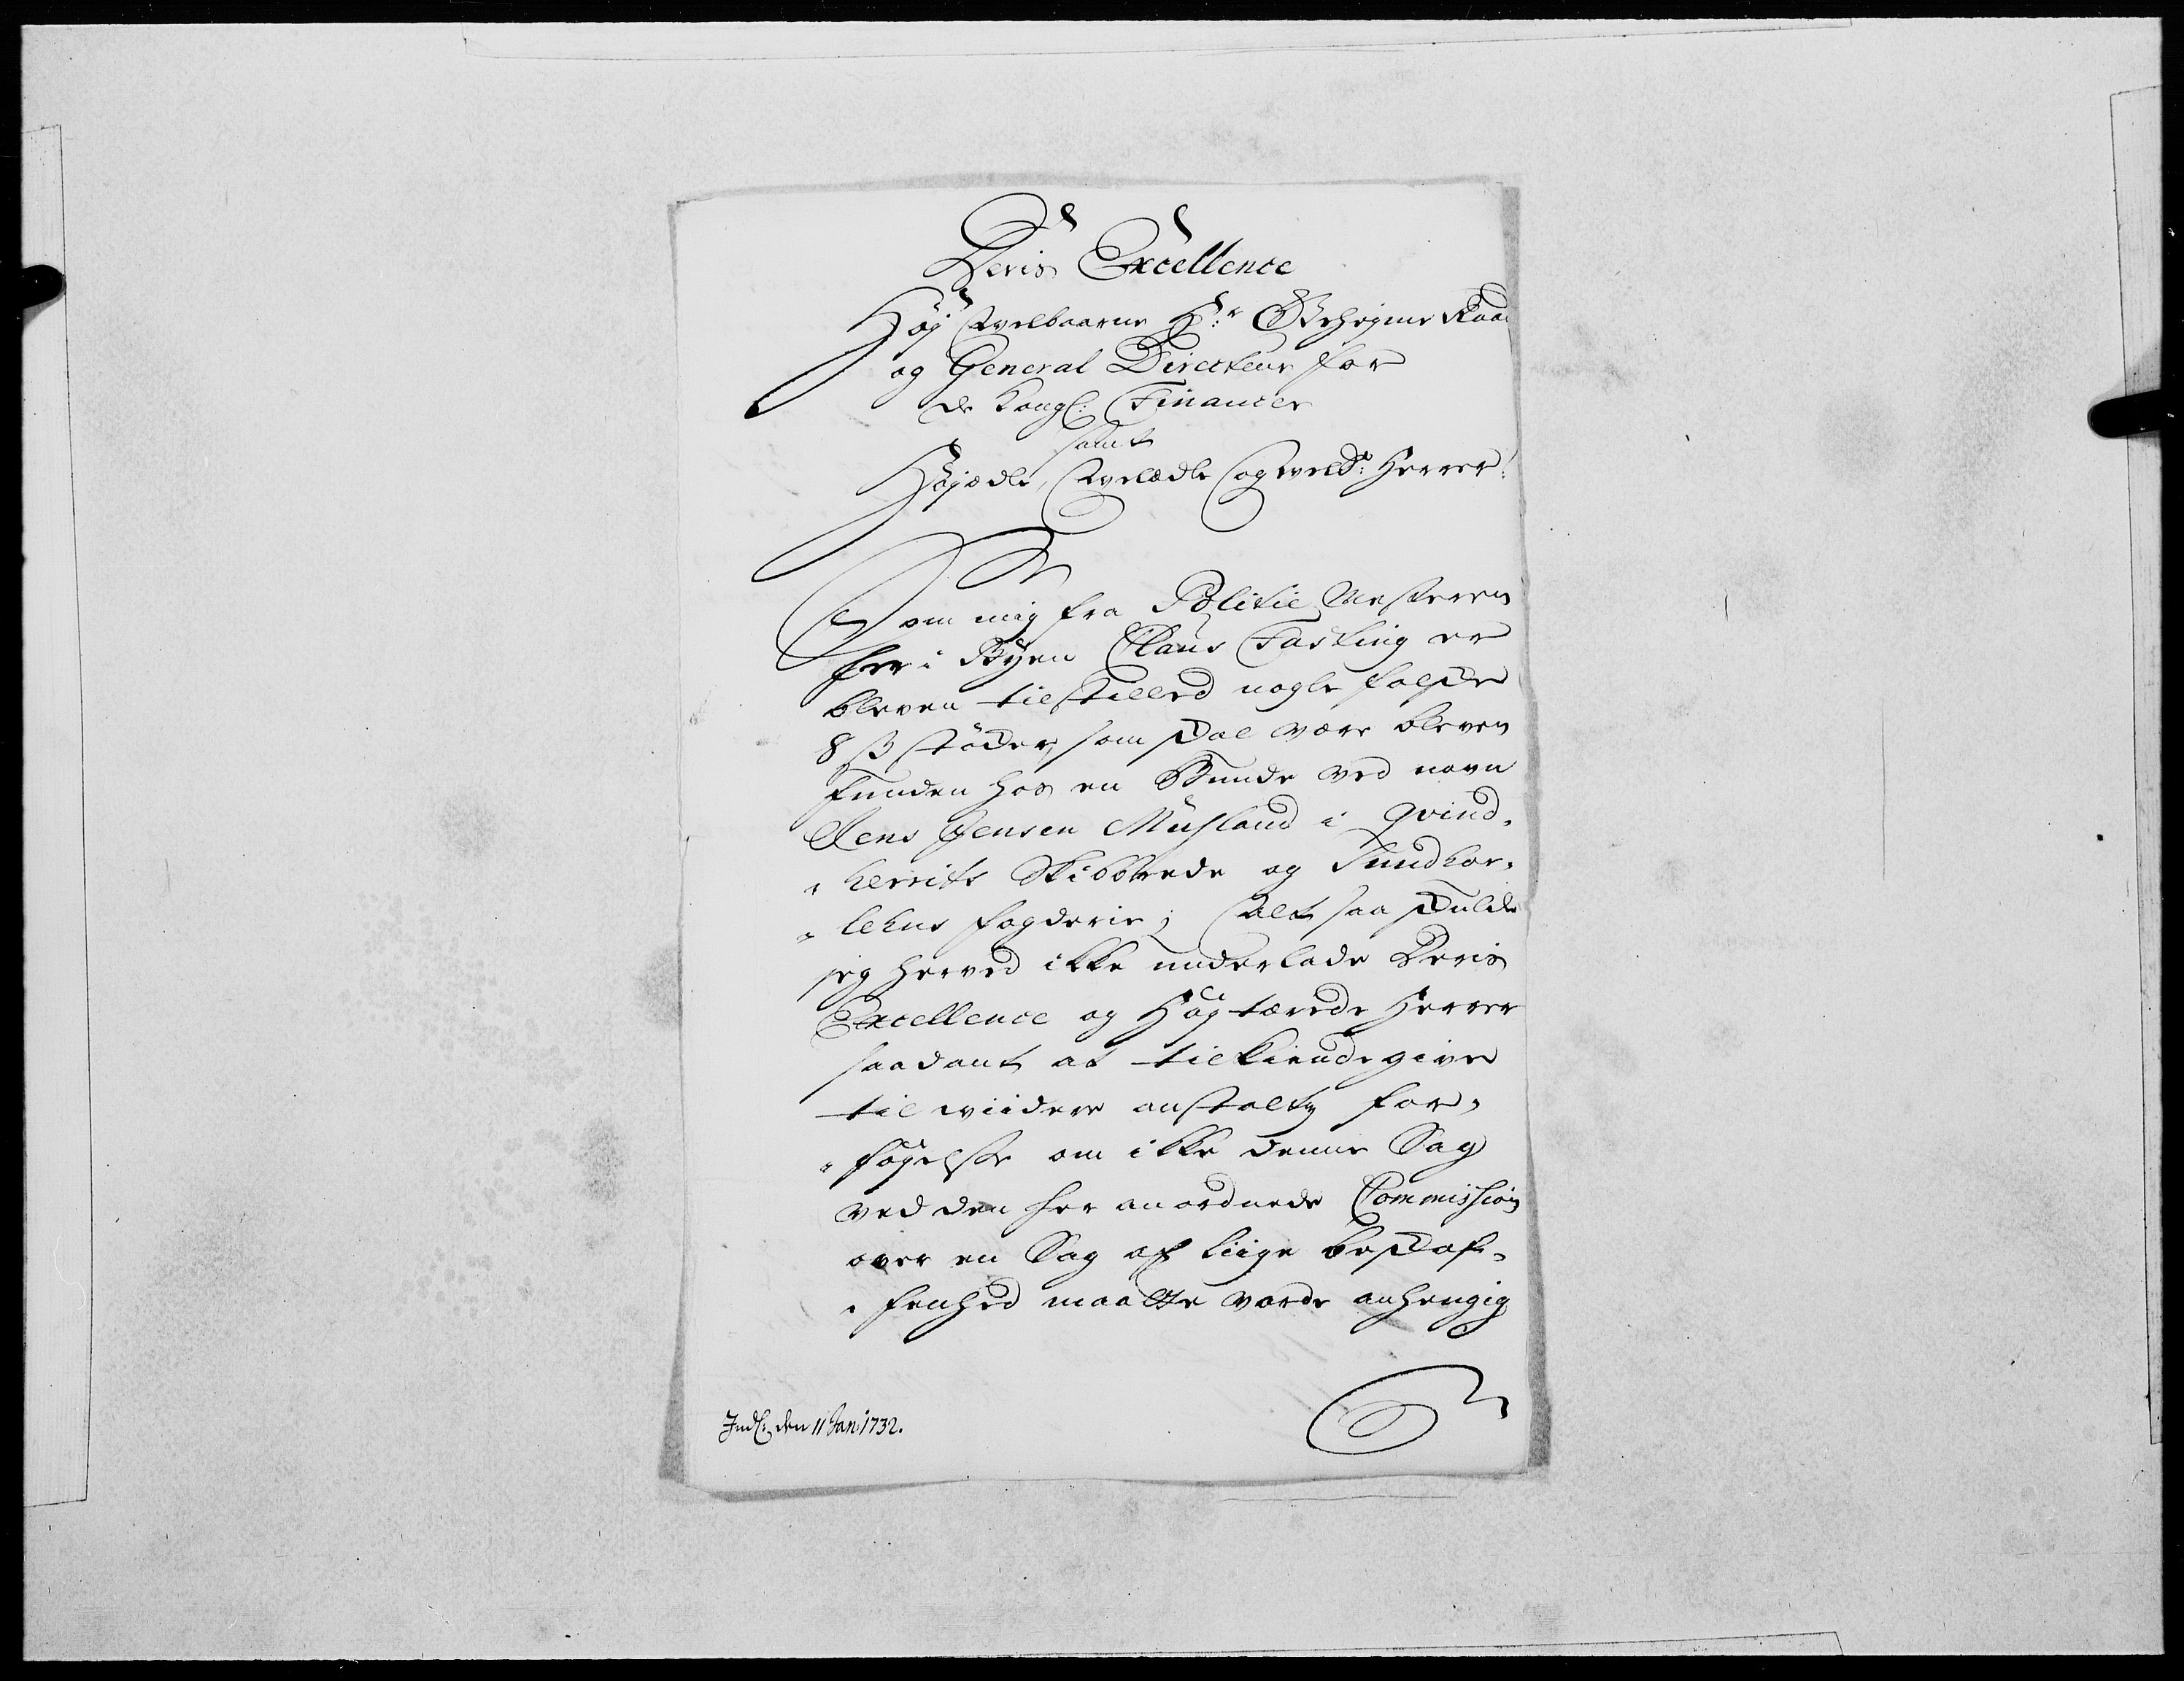 Deris Excellence
Høy Velbaarne Hr: Geheime Raad
og General Directeur for
de Kongl: Financer
samt
Høyædle, Velædle og Velb: Herrer!
Som mig fra Politie Mesteren
her i Byen Claus Fasting er
bleven tilstilled nogle falske
8 ß støcher, som skal være bleven
funden hos en Bunde ved navn
Jens Jensen Musland i Qvind-
herrits Skibbrede og Sundhor-
lehns fogderie; Alt saa skulde
jeg herved ikke underlade Deris
Excellence og Høytærede Herrer
saadant at tilkiende give
til viidere anstalts for-
føyelse om ikke denne Sag
ved den her anordnede Commission
over en Sag af liige beskaf-
fenhed maatte vorde anhengig
Indl: den 11 Jan: 1732.